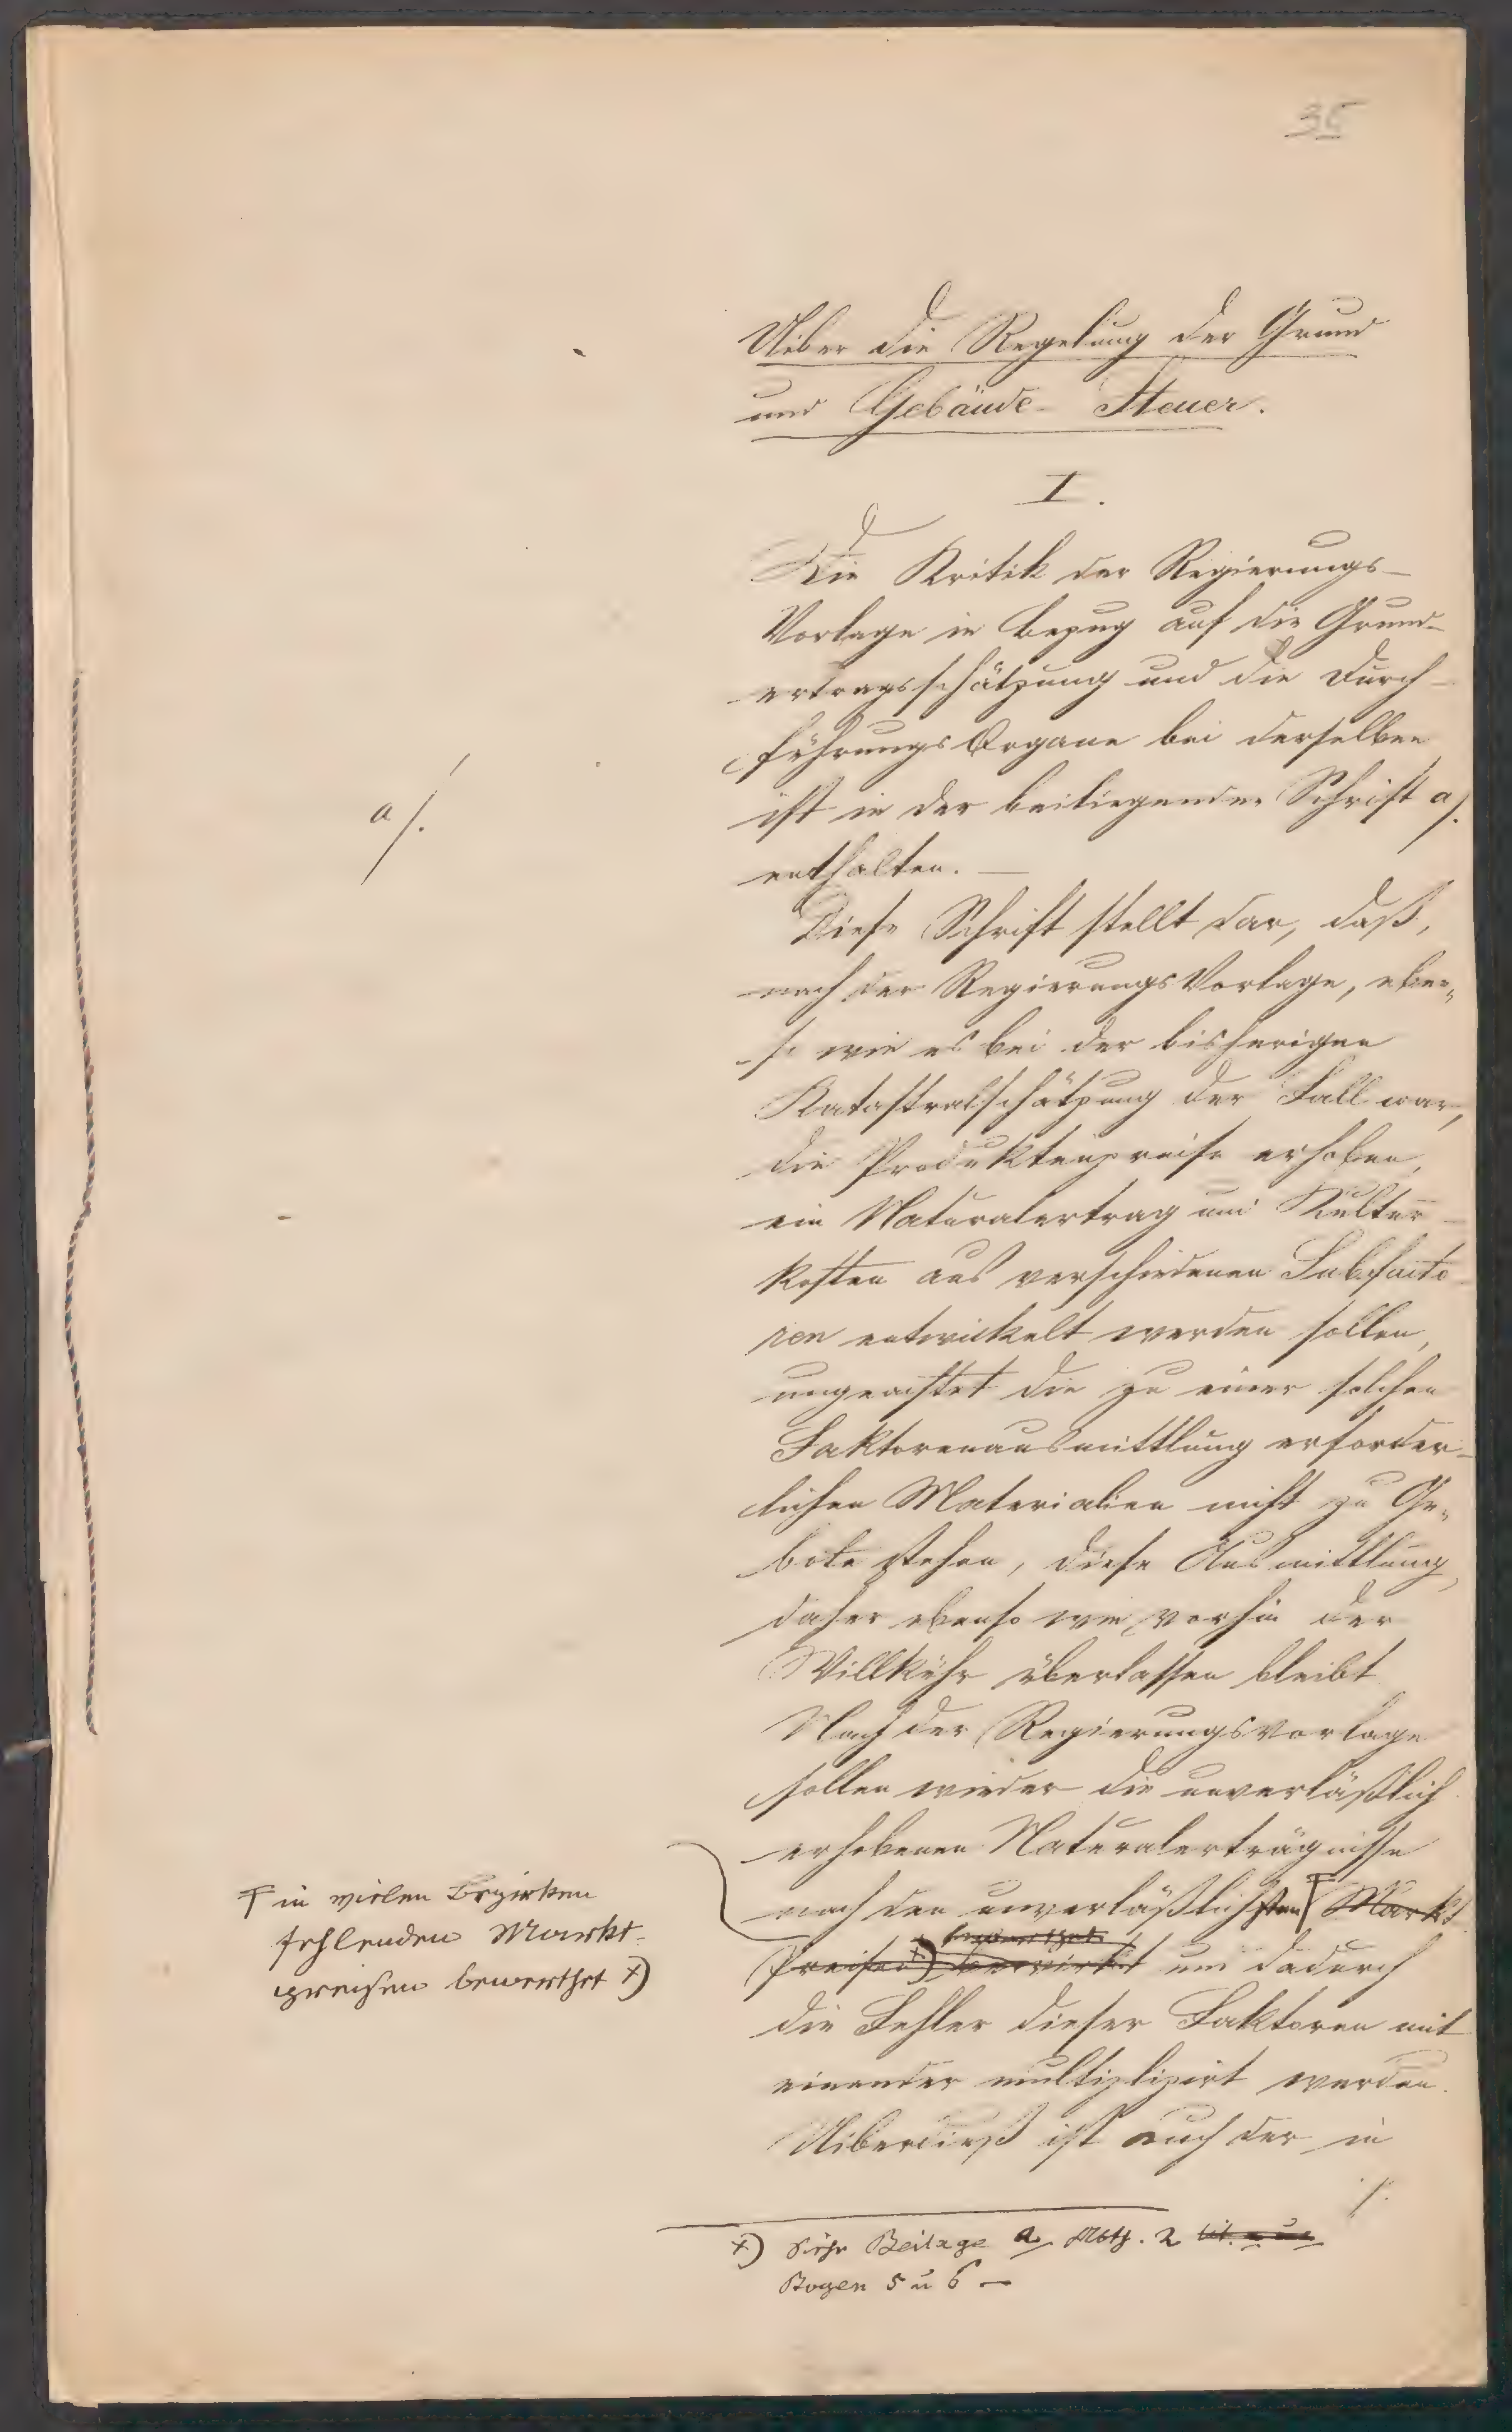 35
Uiber die Regelung der Grund
und Gebäude- Steuer.
I.
Die Kritik der Regierungs-
Vorlage in Bezug auf die Grund-
ertragsschätzung und die Durch-
führungs Organe bei derselben
ist in der beiliegenden Schrift a/.
enthalten. —
a/.
Diese Schrift stellt dar, daß,
nach der Regierungs Vorlage, eben„
so wie es bei der bisherigen
Katastralschätzung der Fall war,
die Produktenpreise erhoben,
ein Naturalertrag und Kultur-
kosten aus verschiedenen Subfacto
ren entwickelt werden sollen,
ungeachtet die zu einer solchen
Faktorenausmittlung erforder-
lichen Materialien nicht zu Ge„
bote stehen, diese Ausmittlung,
daher ebenso wie vorhin der
Willkühr überlassen bleibt
Nach der Regierungsvorlage
sollen wieder die unverläßlich
erhobenen Naturalerträgnisse
nach den unverläßlichsten Markt
Preisen x) bewerthet und dadurch
die Fehler dieser Faktoren mit
einander multiplizirt werden.
Uiberdieß ist auch der in
./.
in vielen Bezirken
fehlenden Markt-
preisen bewerthet x)
x) Siehe Beilage a Abth. 2 lit.
Bogen 5 u 6 —